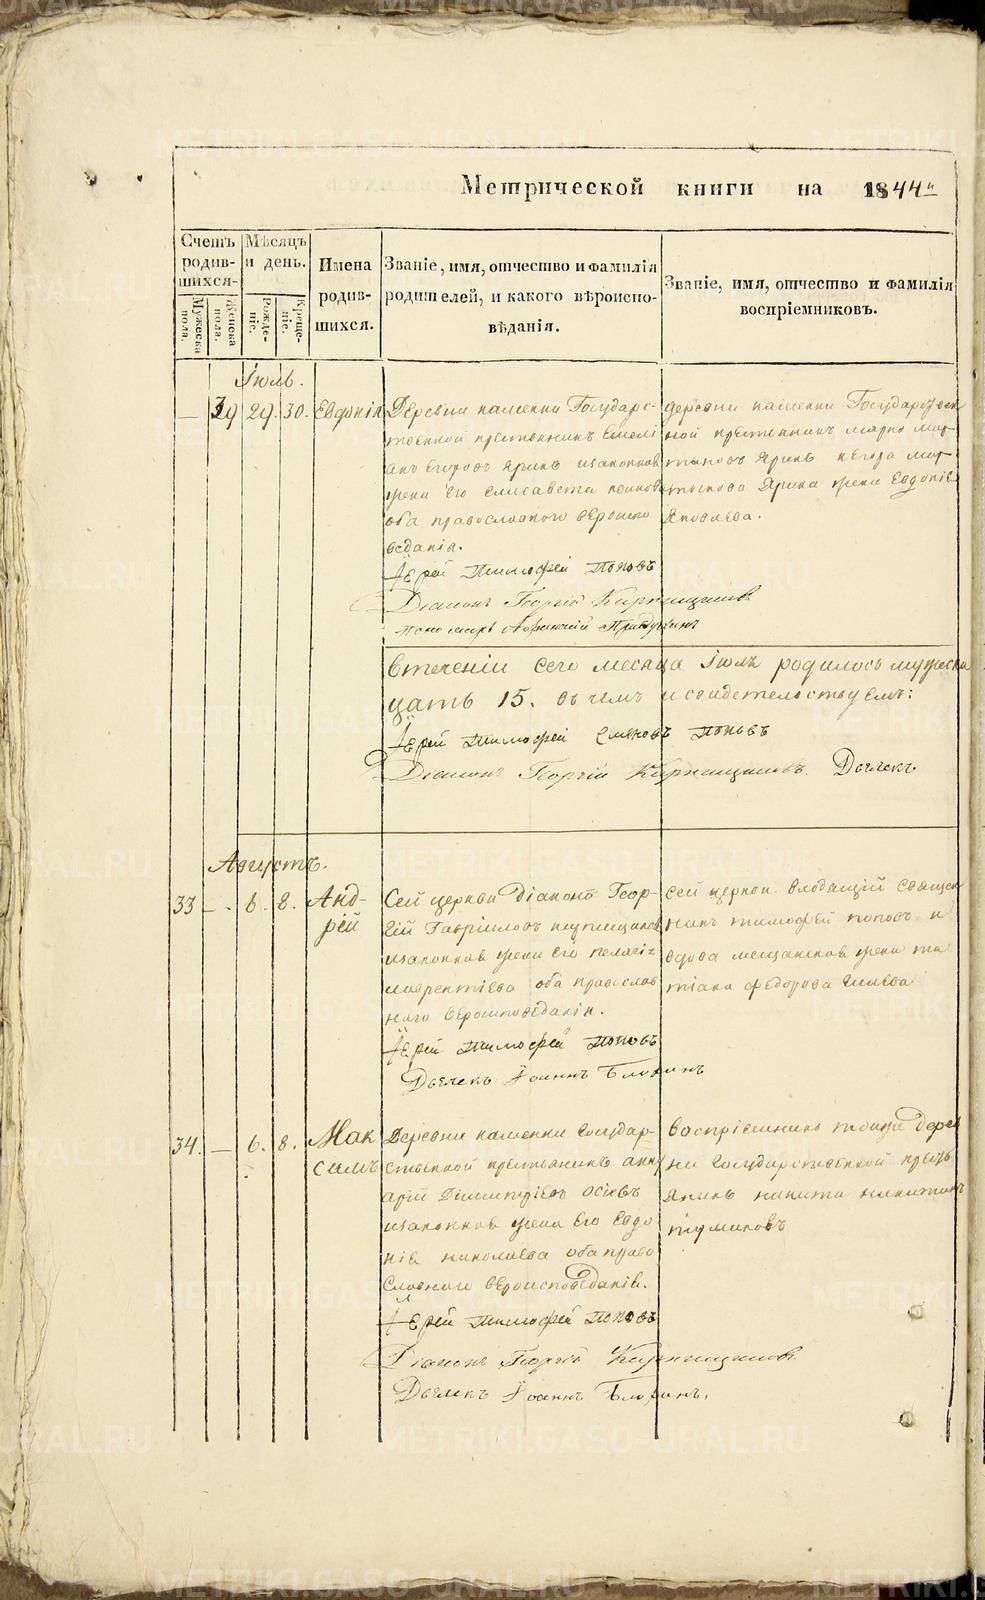 Метрической книги на 1844й
Счетъ родив-шихся.
Мужеска пола.
Женска пола.
Мѣсяцъ и день.
Рожде-ніе.
Креще-ніе.
Имена родив-шихся.
Званіе, имя, отчество и фамилія
родителей, и какого вѣроиспо-
вѣданія.
Званіе, имя, отчество и фамилія
воспріемниковъ.
Іюль.
— 39 29. 30. Евдокія
Деревни каменки Государс-
твенной крестьянинъ емелі
анъ Егоровъ Яринъ изаконная
жена Его елисавета
оба православного вероиспо
ведания.
Іерей Тимофей Поповъ
Діаконъ Георгій Кирпищиковъ
пономарь
деревни каменки Государствен
ной крестьянинъ марко мар-
тыновъ Яринъ иегора мар
тынова Ярина жена Евдокія
Яковлева.
втеченіи сего месяца Іюля родилось мужеска
цать 15. въ чемъ исвидетельствуемъ:
Іерей Тимофей Симеоновъ Поповъ
Діаконъ Георгій Кирпищиковъ. Дьячекъ
Августъ.
33 — 6. 8. Анд-
рей
Сей церкви Діаконъ Геор-
гій Гавріиловъ кирпищиковъ
изаконная жена его пелагія
лаврентіева оба православ
наго вероисповеданія.
Іерей Тимофей Поповъ
Дьячекъ Іоаннъ
сей церкви владащій священ
никъ тимофей поповъ и
вдова мещанская жена та
тіана федорова
34. — 6. 8. Мак
симъ
Деревни каменки Государ-
ственной крестьянинъ
арій Димитріевъ осіевъ
изаконная жена Его Евдо
кія николаева оба право
славнаго вероисповеданія.
Іерей Тимофей Поповъ
Діаконъ Георгій Кирпищиковъ
Дьячекъ Іоаннъ
воспріемникъ тояже дерев
ни Государственной кресть
янинъ никита никитинъ
тумаковъ
METRIKI.GASO-URAL.RU